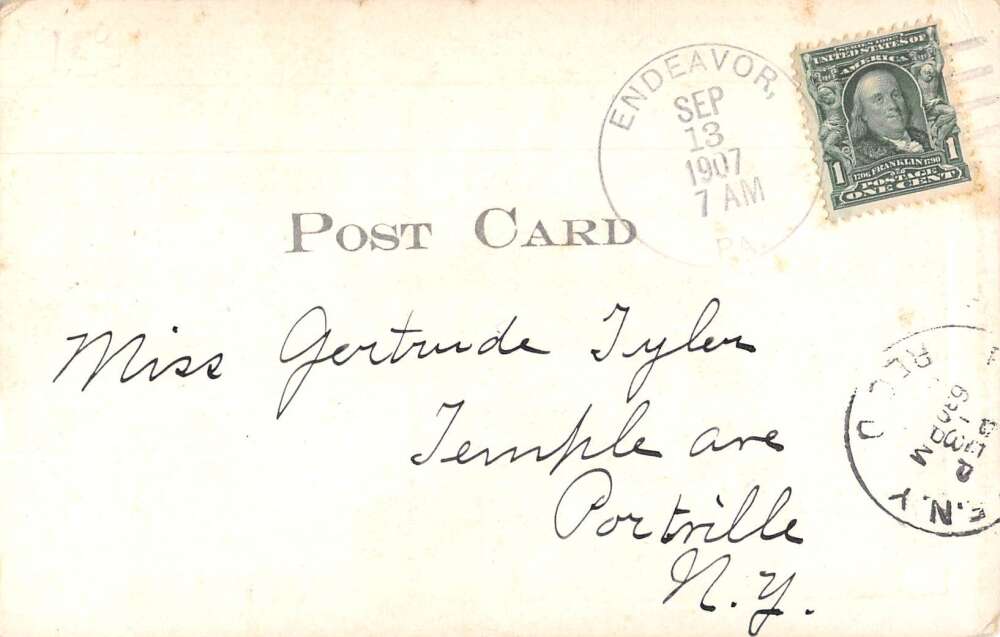 ENDEAVOR,
SEP
13
1907
7 AM
PA.
SERIES 1902
UNITED STATES OF
AMERICA
1 1706 FRANKLIN 1790 1
POSTAGE
ONE CENT
POST CARD
Miss Gertrude Tyler
Temple ave
Portville
N.Y.
REC'D
E.N.Y